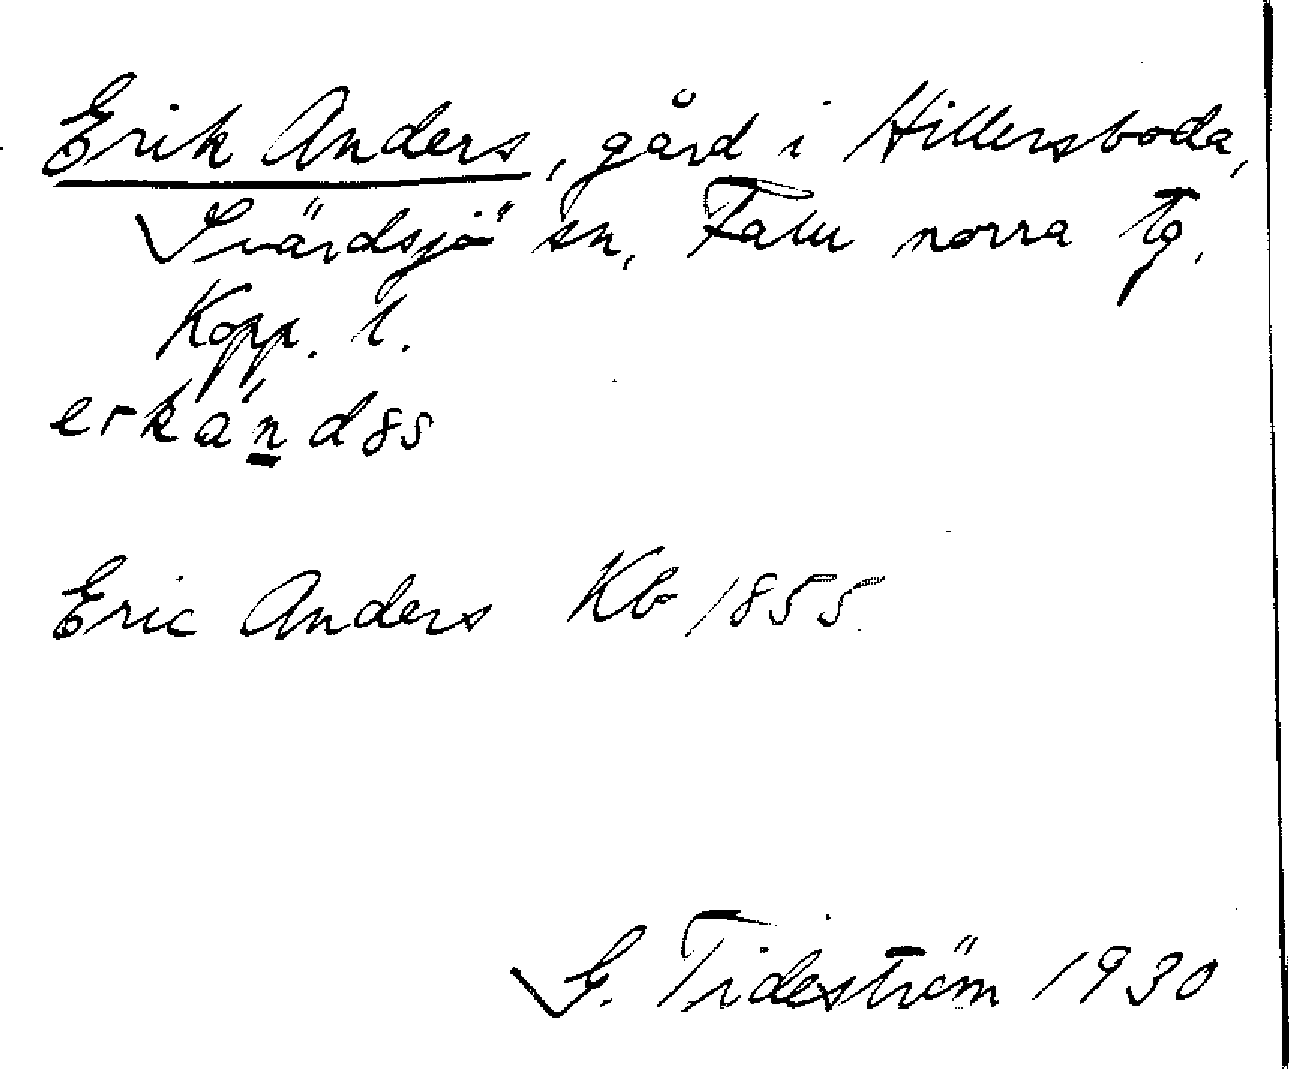 Erik Anders, gård i Hillersboda,
Svärdsjö sn, Falu norra tg,
Kopp. l.
erkändss
Eric Anders Kb 1855.
G. Tideström 1930